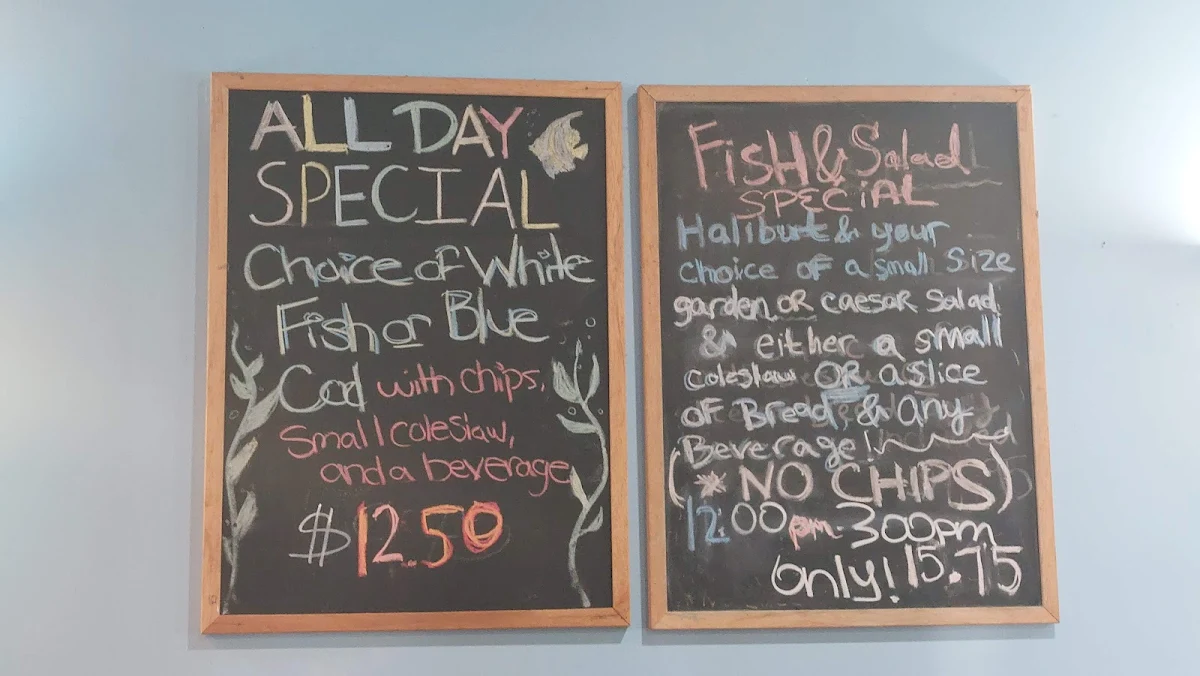 ALL DAY
SPECIAL
Choice of White
Fish or Blue
Cod with chips,
Small coleslaw,
and a beverage
$12.50
FiSH & Salad
SPECiAL
Halibut & your
choice of a small size
garden OR caesar salad
& either a small
coleslaw OR a slice
of Bread & any
Beverage!
(* NO CHIPS)
12:00pm-300pm
only! 15.75